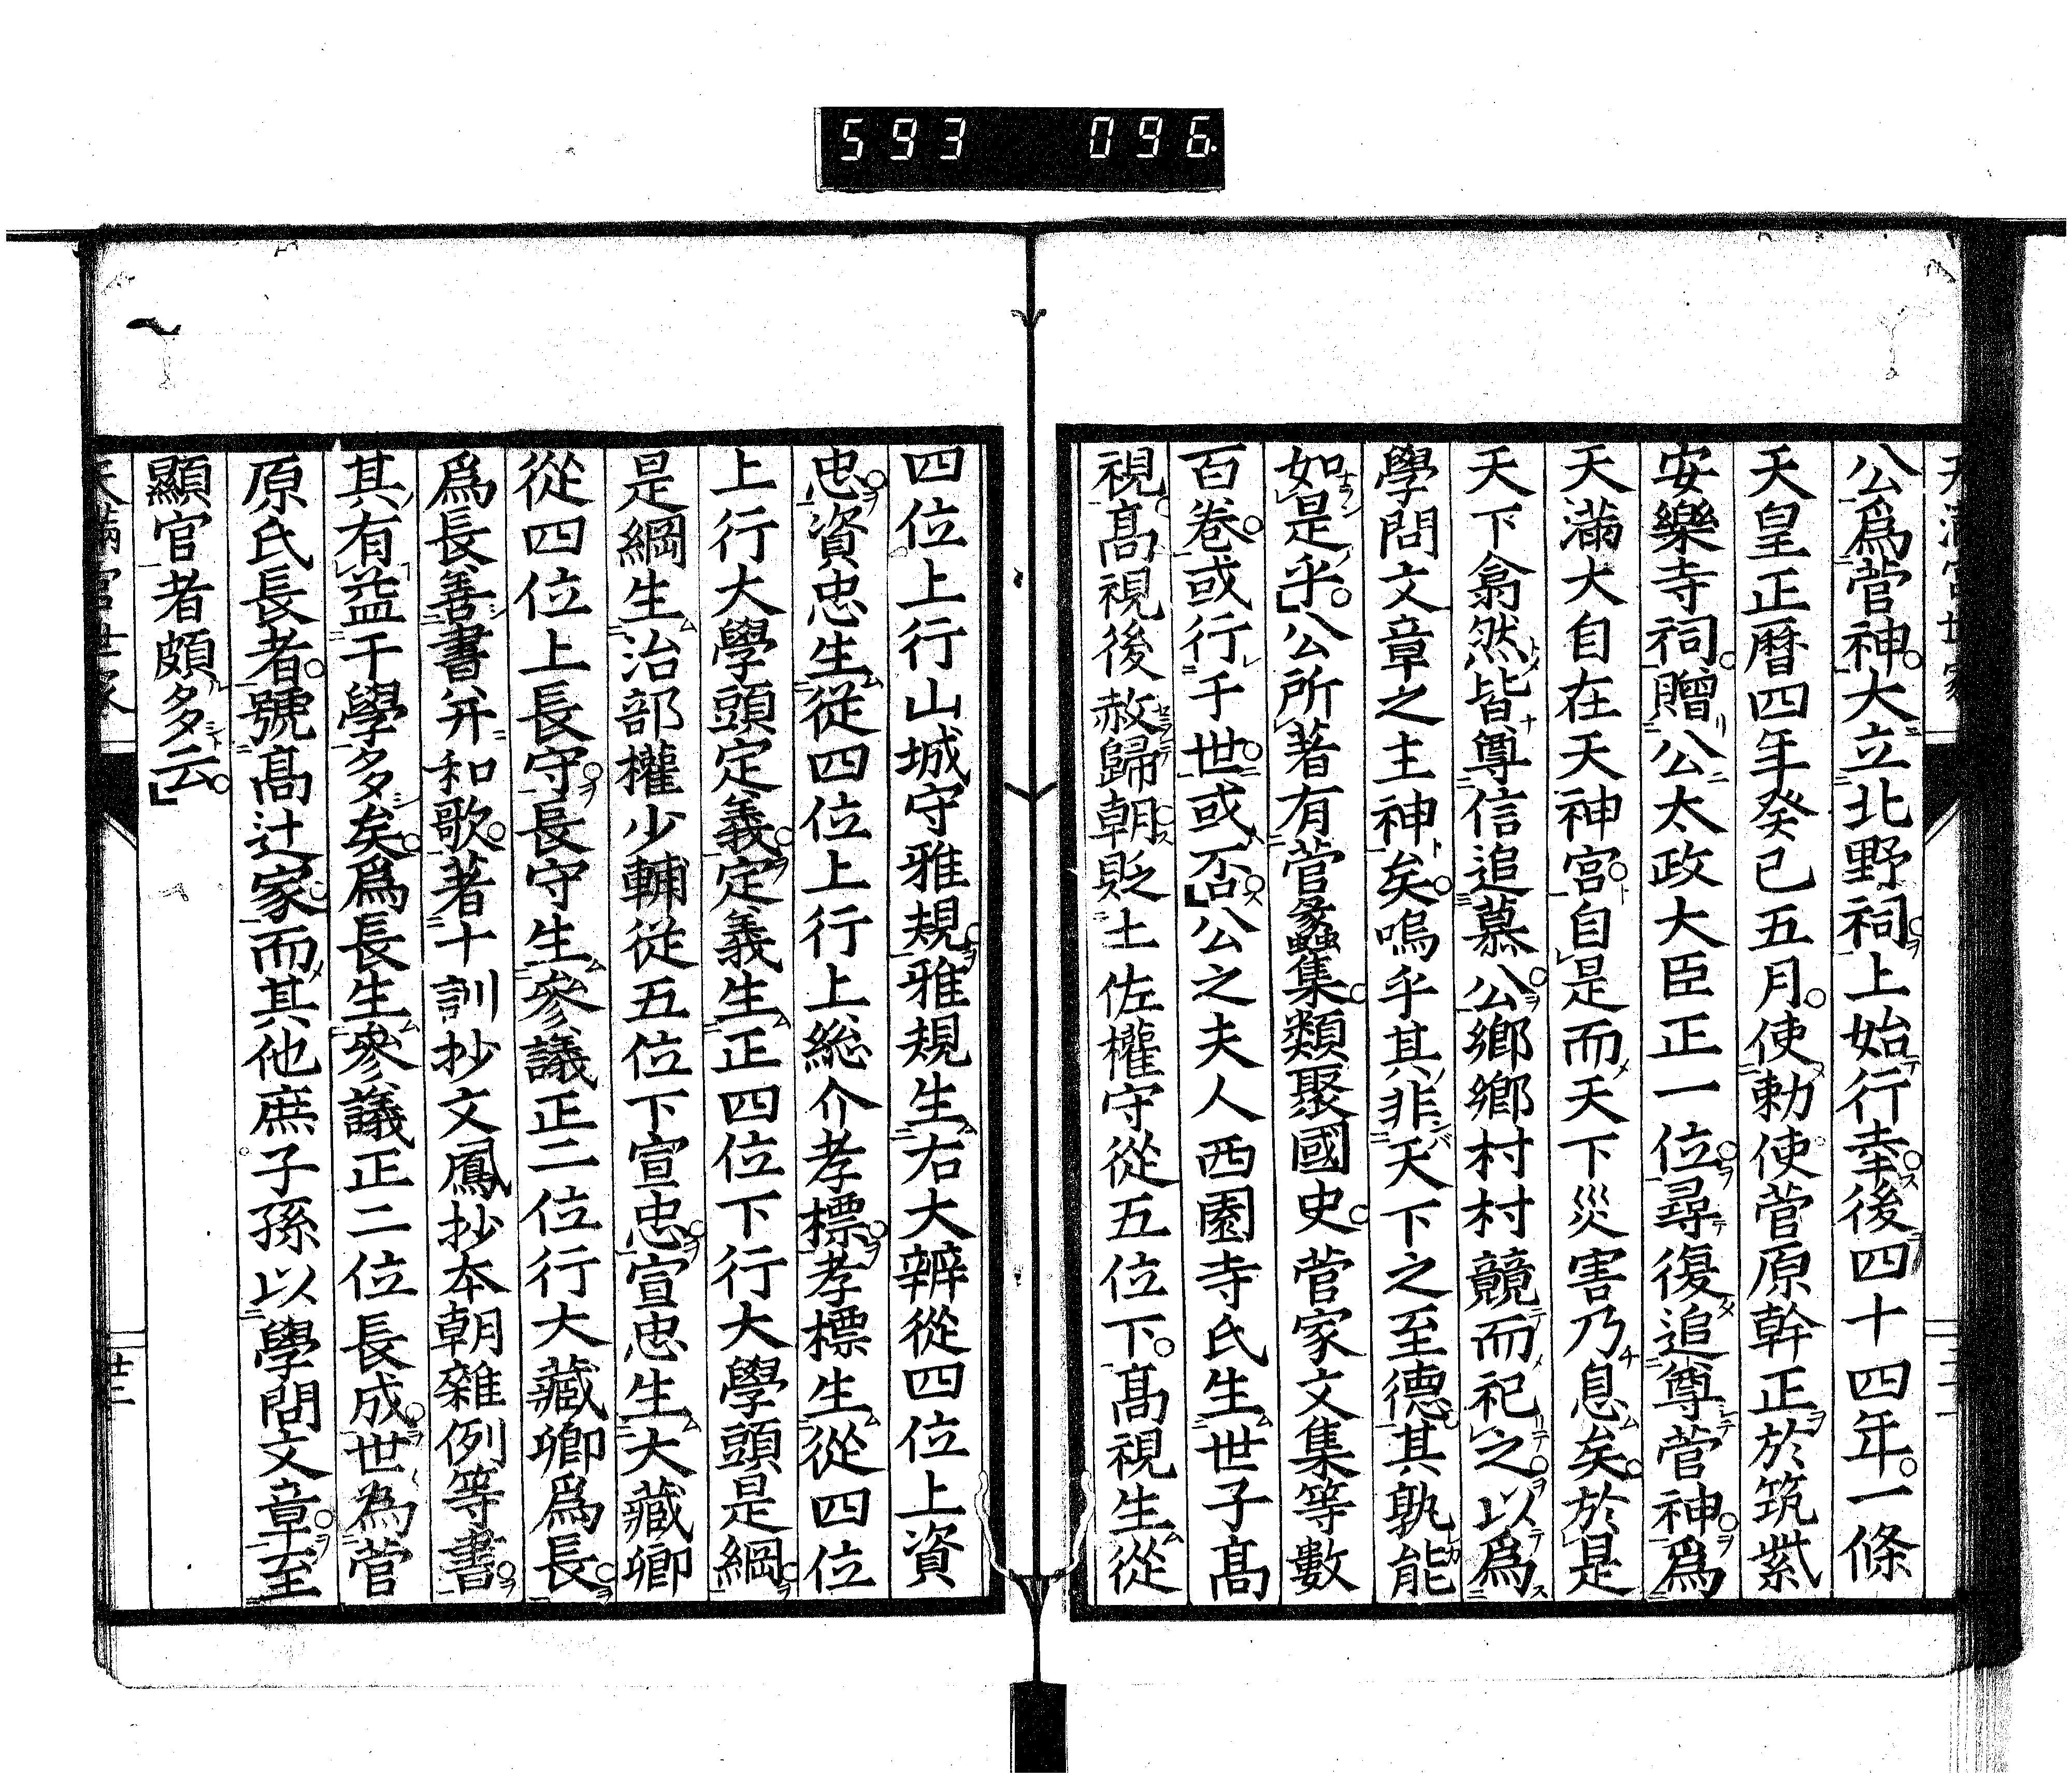 593 096
公爲菅神大立北野祠上始行幸後四十四年一條
天皇正暦四年癸巳五月使勅使菅原幹正於筑紫
安樂寺祠贈公太政大臣正一位尋復追尊菅神爲
天滿大自在天神宮自是而天下災害乃息矣於是
天下翕然皆尊信追慕公鄉鄉村村競而祀之以爲
學問文章之主神矣嗚乎其非天下之至德其孰能
如是乎公所著有菅家集類聚國史菅家文集等數
百卷或行于世或否公之夫人西園寺氏生世子髙
視髙視後赦歸朝貶土佐權守從五位下髙視生從
四位上行山城守雅規雅規生右大辨從四位上資
忠資忠生從四位上行上総介孝標孝標生從四位
上行大學頭定義定義生正四位下行大學頭是綱
是綱生治部權少輔從五位下宣忠宣忠生大藏卿
從四位上長守長守生參議正二位行大藏卿爲長
爲長善書并和歌著十訓抄文鳳抄本朝雜例等書
其有益于學多矣爲長生參議正二位長成世為菅
原氏長者號髙辻家而其他庶子孫以學問文章至
顯官者頗多云
天滿宮世家 廿二